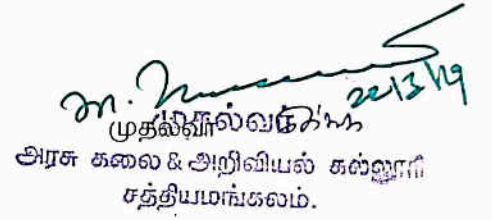 22/3/19
முதல்வர்
அரசு கலை & அறிவியல் கல்லூரி
சத்தியமங்கலம்.